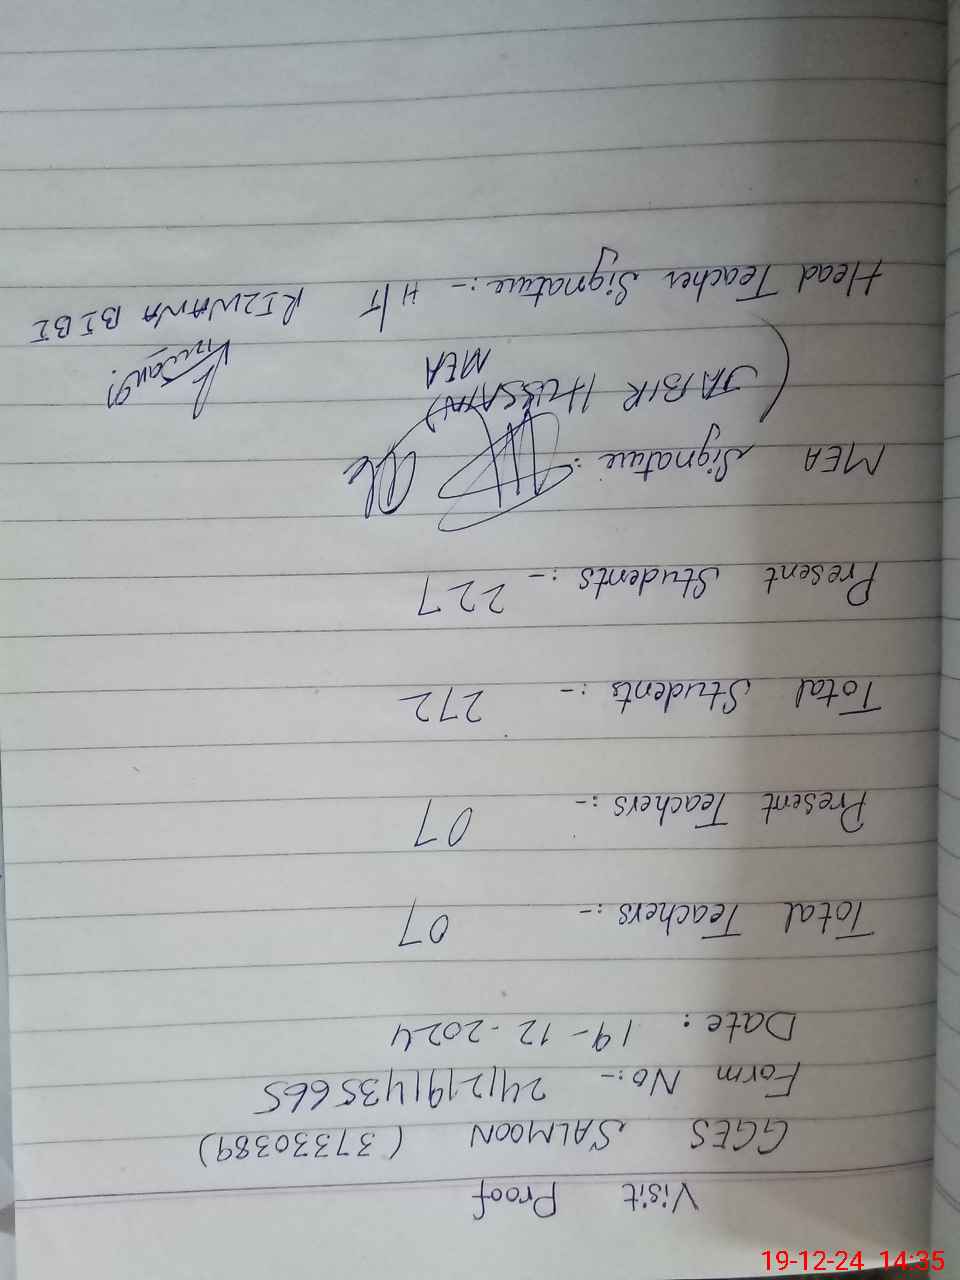 Visit Proof
GGES SALMOON (37330389)
Form No:- 241219143566S
Date: 19-12-2024
Total Teachers:- 07
Present Teachers:- 07
Total Students:- 272
Present Students:- 227
MEA Signature:
(JABIR HUSSAIN)
MEA
Head Teacher Signature:- H/T RIZWANA BIBI
19-12-24 14:35